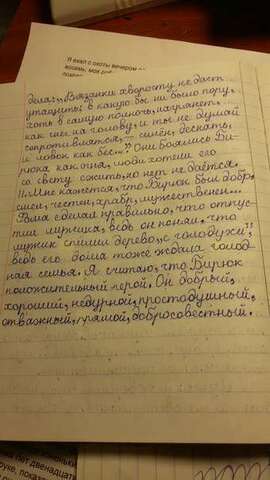 Я ехал с охоты вечером
делах. „Вязанки хворосту не даст
утащить; в какую бы ни было пору,
хоть в самую полночь, нагрянет,
как снег на голову, и ты не думай
сопротивляться, — силён, дескать,
и ловок как бес...” Они боялись Би-
рюка как огня, люди хотели его
со свету сжить, но нет не даётся.
Мне кажется, что Бирюк был добр,
силен, честен, храбр, мужественен...
Фома сделал правильно, что отпус-
тил мужика, ведь он понял, что
мужик спилил дерево „с голодухи”,
ведь его дома тоже ждала голод-
ная семья. Я считаю, что Бирюк
положительный герой. Он добрый,
хороший, недурной, простодушный,
отважный, прямой, добросовестный.
лет двенадцат
руке, показа